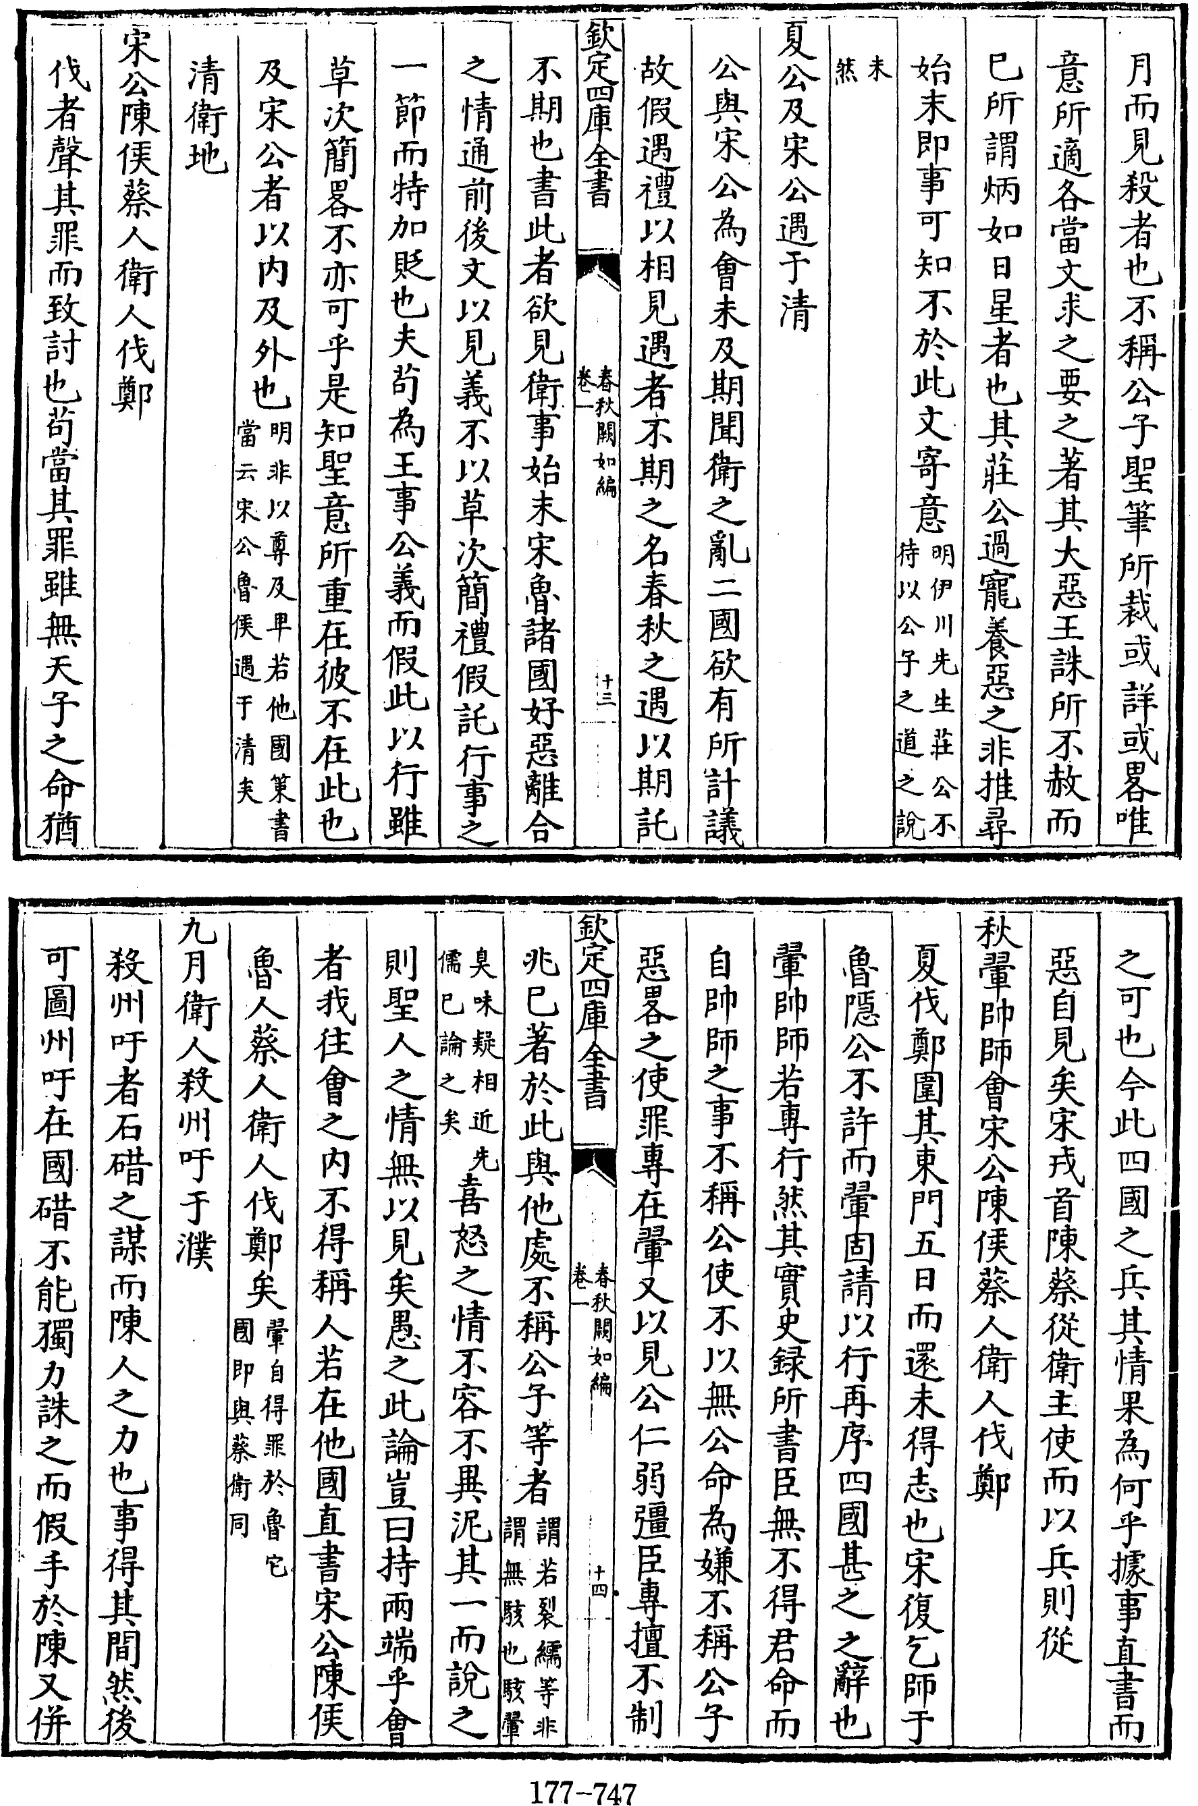 月而見殺者也不稱公子聖筆所裁或詳或畧唯
意所適各當文求之要之著其大惡王誅所不赦而
已所謂炳如日星者也其莊公過寵養惡之非推尋
始末即事可知不於此文寄意明伊川先生莊公不待以公子之道之說
未然
夏公及宋公遇于清
公與宋公為會未及期聞衛之亂二國欲有所計議
故假遇禮以相見遇者不期之名春秋之遇以期託
欽定四庫全書
春秋闕如編
卷一
十三
不期也書此者欲見衛事始末宋魯諸國好惡離合
之情通前後文以見義不以草次簡禮假託行事之
一節而特加貶也夫苟為王事公義而假此以行雖
草次簡畧不亦可乎是知聖意所重在彼不在此也
及宋公者以内及外也明非以尊及卑若他國策書當云宋公魯侯遇于清矣
清衛地
宋公陳侯蔡人衛人伐鄭
伐者聲其罪而致討也苟當其罪雖無天子之命猶
之可也今此四國之兵其情果為何乎據事直書而
惡自見矣宋戎首陳蔡從衛主使而以兵則從
秋翬帥師會宋公陳侯蔡人衛人伐鄭
夏伐鄭圍其東門五日而還未得志也宋復乞師于
魯隱公不許而翬固請以行再序四國甚之之辭也
翬帥師若專行然其實史録所書臣無不得君命而
自帥師之事不稱公使不以無公命為嫌不稱公子
惡畧之使罪專在翬又以見公仁弱彊臣專擅不制
欽定四庫全書
春秋闕如編
卷一
十四
兆已著於此與他處不稱公子等者謂若裂繻等非謂無駭也駭翬
臭味疑相近先儒已論之矣喜怒之情不容不異泥其一而說之
則聖人之情無以見矣愚之此論豈曰持兩端乎會
者我往會之内不得稱人若在他國直書宋公陳侯
魯人蔡人衛人伐鄭矣翬自得罪於魯它國即與蔡衛同
九月衛人殺州吁于濮
殺州吁者石碏之謀而陳人之力也事得其間然後
可圖州吁在國碏不能獨力誅之而假手於陳又併
177-747